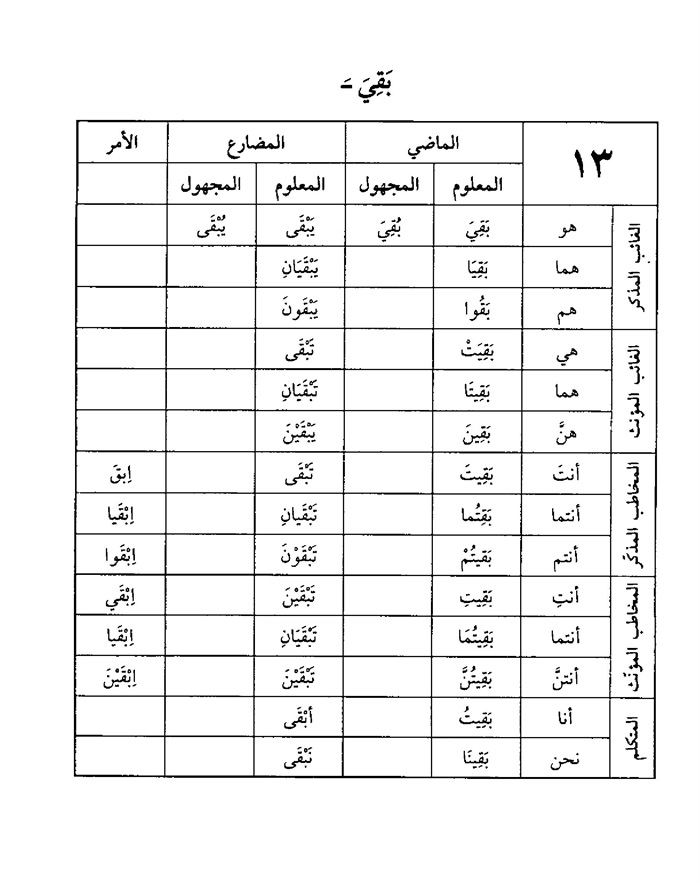 بَقِيَ ـَ
١٣ الماضي المضارع الأمر
المعلوم المجهول المعلوم المجهول
الغائب المذكر
هو بَقِيَ بُقِيَ يَبْقَى يُبْقَى
هما بَقِيَا يَبْقَيَانِ
هم بَقُوا يَبْقَونَ
الغائب المؤنث
هي بَقِيَتْ تَبْقَى
هما بَقِيتَا تَبْقَيَانِ
هنَّ بَقِينَ يَبْقَيْنَ
المخاطب المذكر
أنتَ بَقِيتَ تَبْقَى اِبقَ
أنتما بَقِتُما تَبْقَيانِ اِبْقَيا
أنتم بَقيتُمْ تَبْقَوْنَ اِبْقَوا
المخاطب المؤنّث
أنتِ بَقِيتِ تَبْقَيْنَ اِبْقَي
أنتما بَقِيتُمَا تَبْقَيَانِ اِبْقَيا
أنتنَّ بَقِيتُنَّ تَبْقَيْنَ اِبْقَيْنَ
المتكلم
أنا بَقِيتُ أبْقَى
نحن بَقِينَا نَبْقَى